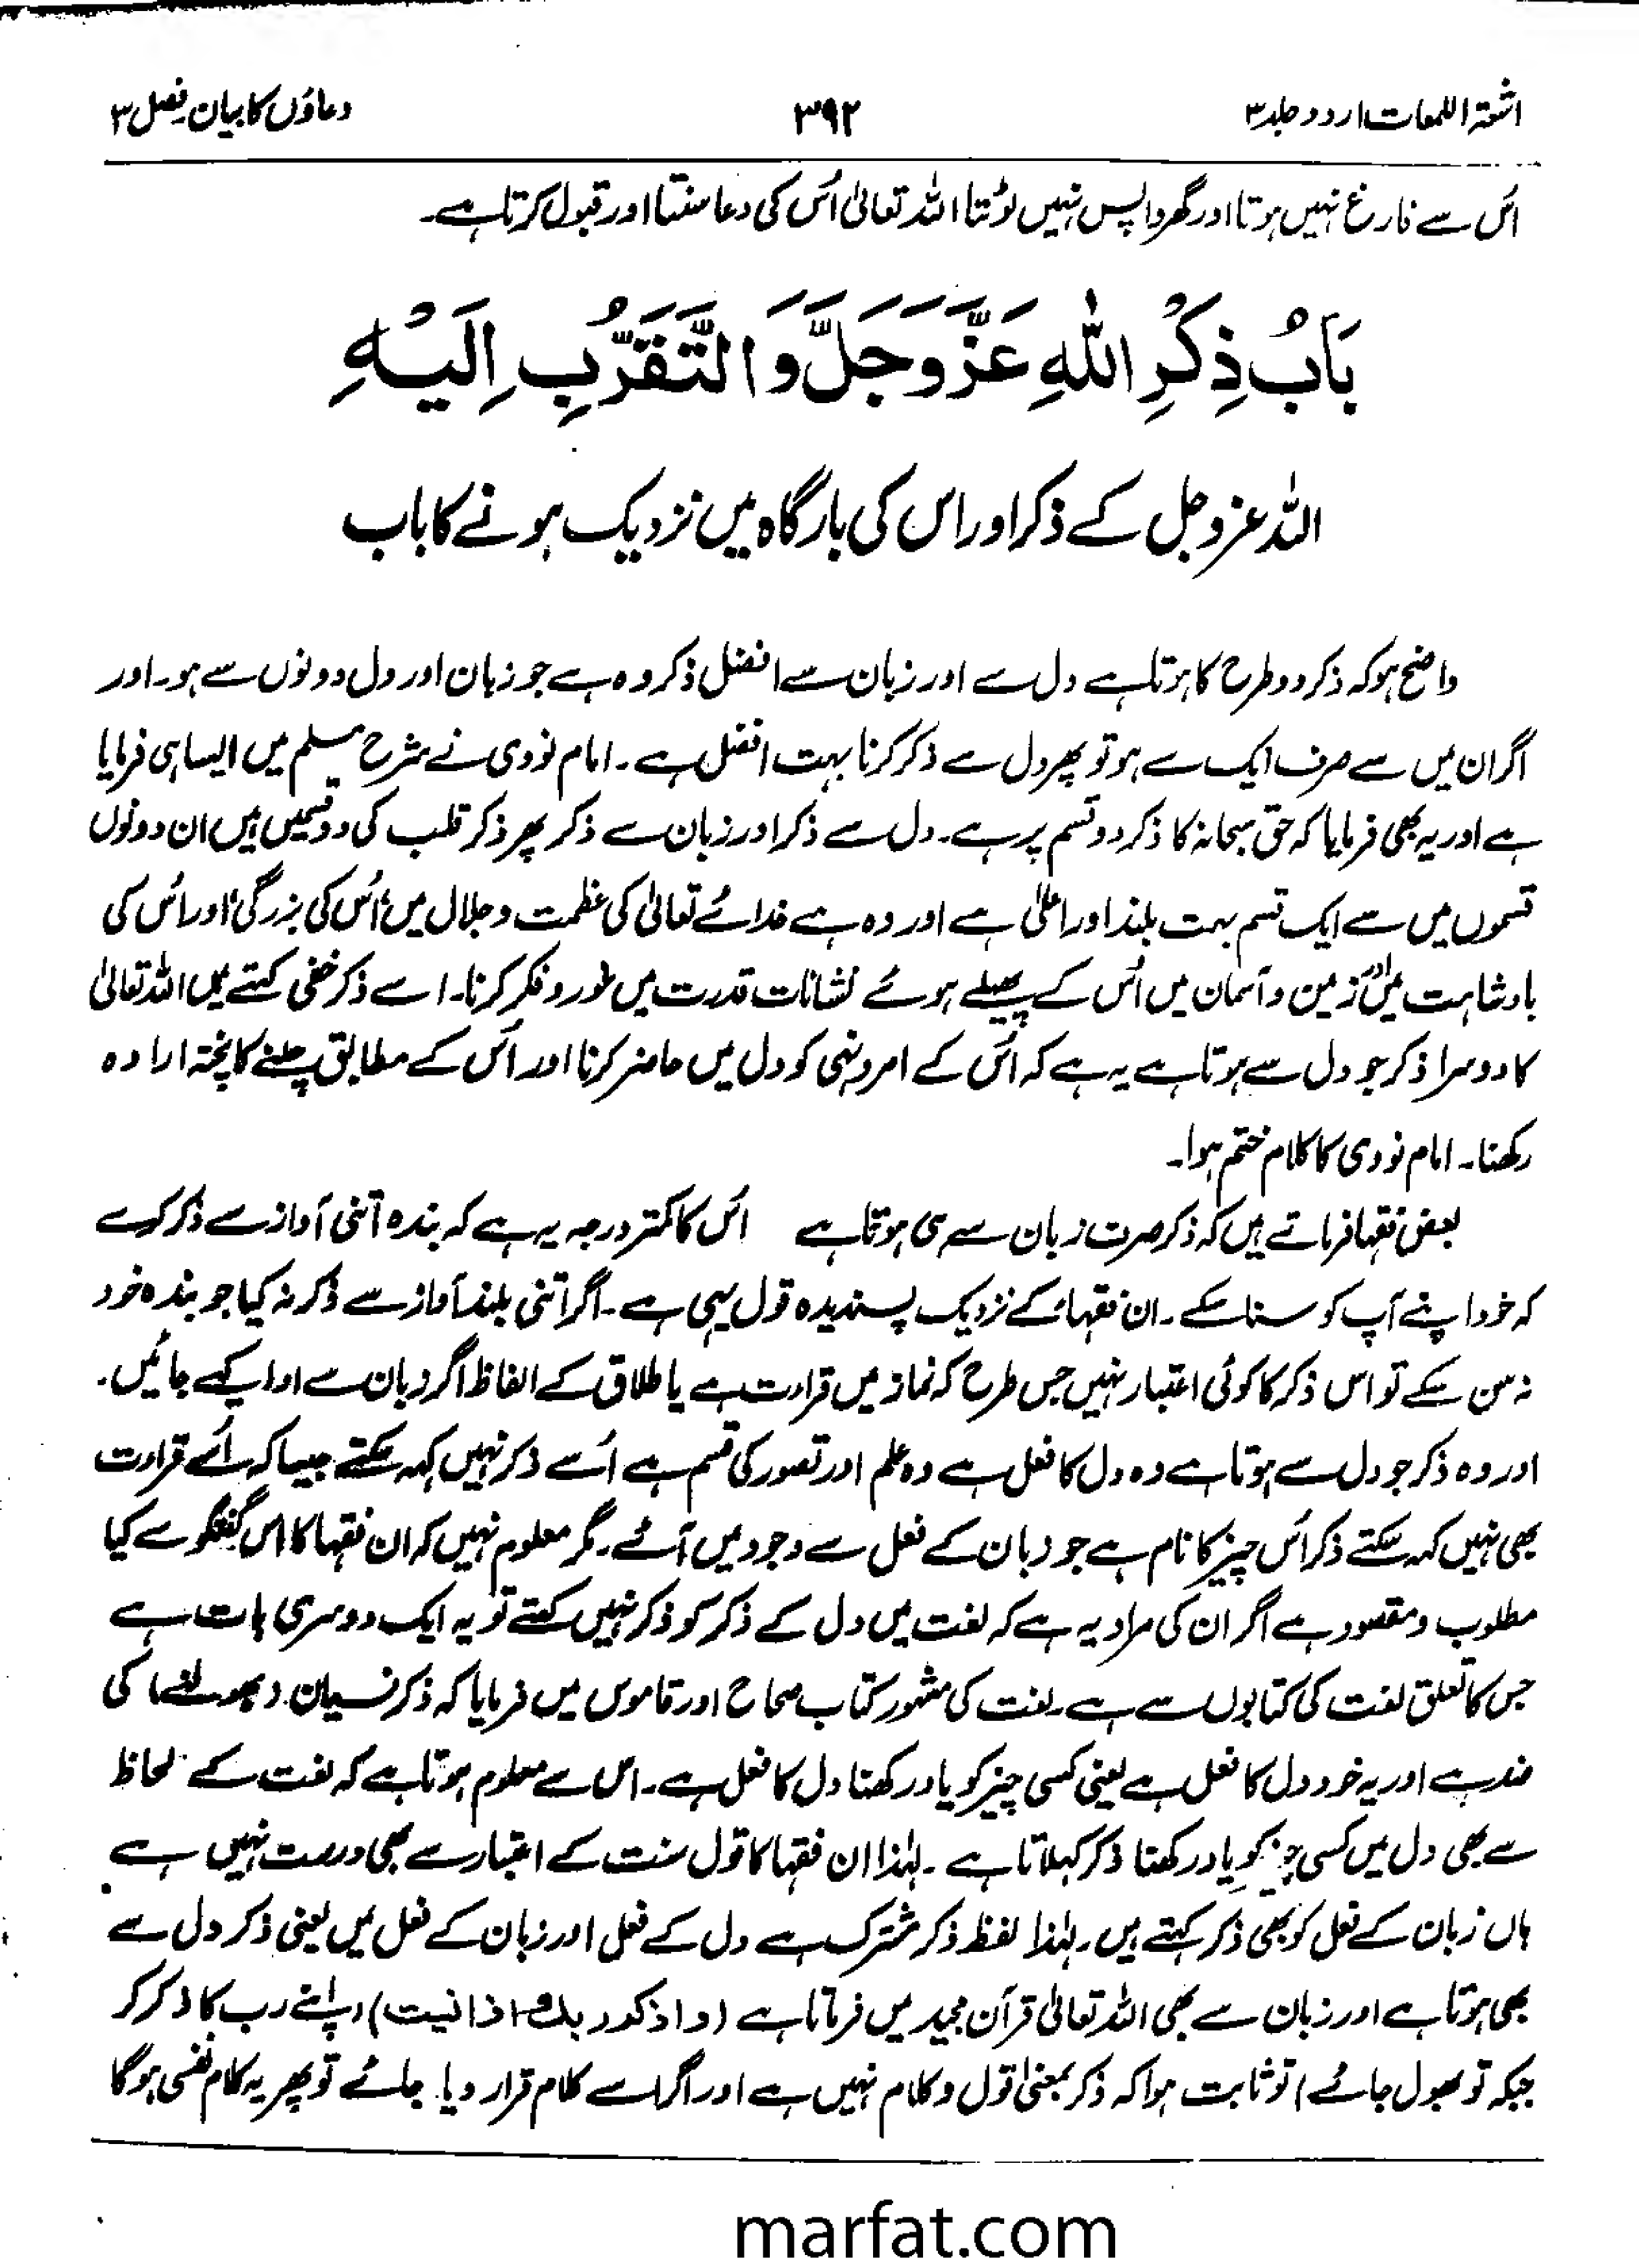 اشعۃ اللمعات اردو جلد ۳
۳۹۲
دعاؤں کا بیان۔ فصل ۳
اُس سے فارغ نہیں ہوتا اور گھر واپس نہیں لوٹتا اللہ تعالیٰ اُس کی دعا سنتا اور قبول کرتا ہے۔
بَابُ ذِكْرِ اللهِ عَزَّ وَجَلَّ وَ التَّقَرُّبِ اِلَيْهِ
اللہ عزوجل کے ذکر اور اس کی بارگاہ میں نزدیک ہونے کا باب
واضح ہو کہ ذکر دو طرح کا ہوتا ہے دل سے اور زبان سے افضل ذکر وہ ہے جو زبان اور دل دونوں سے ہو۔ اور
اگر ان میں سے صرف ایک سے ہو تو پھر دل سے ذکر کرنا بہت افضل ہے۔ امام نووی نے شرح مسلم میں ایسا ہی فرمایا
ہے اور یہ بھی فرمایا کہ حق سبحانہٗ کا ذکر دو قسم پر ہے۔ دل سے ذکر اور زبان سے ذکر پھر ذکر قلب کی دو قسمیں ہیں ان دونوں
قسموں میں سے ایک قسم بہت بلند اور اعلیٰ ہے اور وہ ہے خدائے تعالیٰ کی عظمت و جلال میں اُس کی بزرگی اور اُس کی
بادشاہت میں اور زمین و آسمان میں اُس کے پھیلے ہوئے نشانات قدرت میں غور و فکر کرنا۔ اسے ذکر خفی کہتے ہیں اللہ تعالیٰ
کا دوسرا ذکر جو دل سے ہوتا ہے یہ ہے کہ اُس کے امر و نہی کو دل میں حاضر کرنا اور اُس کے مطابق چلنے کا پختہ ارادہ
رکھنا۔ امام نووی کا کلام ختم ہوا۔
بعض فقہا فرماتے ہیں کہ ذکر صرف زبان سے ہی ہوتا ہے اُس کا کمتر درجہ یہ ہے کہ بندہ اتنی آواز سے ذکر کرے
کہ خود اپنے آپ کو سنا سکے۔ ان فقہاء کے نزدیک پسندیدہ قول یہی ہے۔ اگر اتنی بلند آواز سے ذکر نہ کیا جو بندہ خود
نہ سن سکے تو اس ذکر کا کوئی اعتبار نہیں جس طرح کہ نماز میں قراءت ہے یا طلاق کے الفاظ اگر زبان سے ادا کیے جائیں۔
اور وہ ذکر جو دل سے ہوتا ہے وہ دل کا فعل ہے وہ علم اور تصور کی قسم ہے اُسے ذکر نہیں کہہ سکتے جیسا کہ اُسے قراءت
بھی نہیں کہہ سکتے ذکر اُس چیز کا نام ہے جو زبان کے فعل سے وجود میں آئے۔ مگر معلوم نہیں کہ ان فقہا کا اس گفتگو سے کیا
مطلوب و مقصود ہے اگر ان کی مراد یہ ہے کہ لغت میں دل کے ذکر کو ذکر نہیں کہتے تو یہ ایک دوسری بات ہے
جس کا تعلق لغت کی کتابوں سے ہے۔ لغت کی مشہور کتاب صحاح اور قاموس میں فرمایا کہ ذکر نسیان (بھولنے) کی
ضد ہے اور یہ خود دل کا فعل ہے یعنی کسی چیز کو یاد رکھنا دل کا فعل ہے۔ اس سے معلوم ہوتا ہے کہ لغت کے لحاظ
سے بھی دل میں کسی چیز کو یاد رکھنا ذکر کہلاتا ہے۔ لہٰذا ان فقہا کا قول سنت کے اعتبار سے بھی درست نہیں ہے
ہاں زبان کے فعل کو بھی ذکر کہتے ہیں۔ لہٰذا لفظ ذکر مشترک ہے دل کے فعل اور زبان کے فعل میں یعنی ذکر دل سے
بھی ہوتا ہے اور زبان سے بھی اللہ تعالیٰ قرآن مجید میں فرماتا ہے (واذکر ربك اذا نسیت) (اپنے رب کا ذکر کر
جبکہ تو بھول جائے) تو ثابت ہوا کہ ذکر بمعنیٰ قول و کلام نہیں ہے اور اگر اسے کلام قرار دیا جائے تو پھر یہ کلام نفسی ہوگا
marfat.com